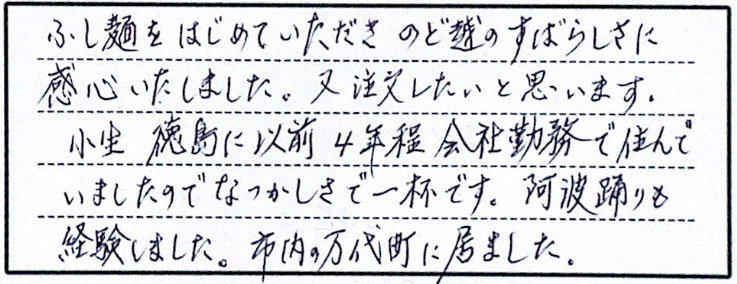 ふし麺をはじめていただき のど越のすばらしさに
感心いたしました。又注文したいと思います。
小生 徳島に以前4年程 会社勤務で住んで
いましたのでなつかしさで一杯です。阿波踊りも
経験しました。市内の万代町に居ました。